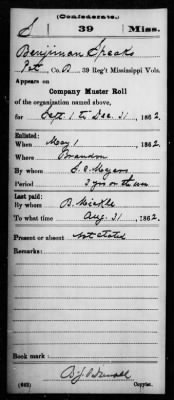 (Confederate.)
S 39 Miss.
Benjiman Speaks
Pvt, Co. B, 39 Reg't Mississippi Vols.
Appears on
Company Muster Roll
of the organization named above,
for Sept 1 to Dec. 31, 1862.
Enlisted:
When May 1, 1862.
Where Brandon
By whom Meyers
Period 3 yrs or the war
Last paid:
By whom B. Mickle
To what time Aug. 31, 1862.
Present or absent Not stated
Remarks:
Book mark:
(642) Copyist.